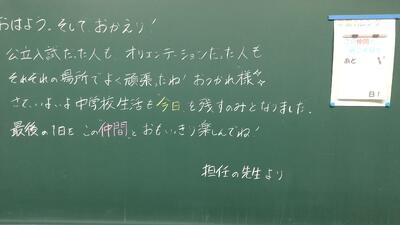 おはよう。そして、おかえり！
公立入試だった人も オリエンテーションだった人も
それぞれの場所でよく頑張ったね！おつかれ様
さて、いよいよ中学校生活も"今日"を残すのみとなりました。
最後の1日をこの"仲間"とおもいっきり楽しんでね！
担任の先生より
仲間
あと
日！